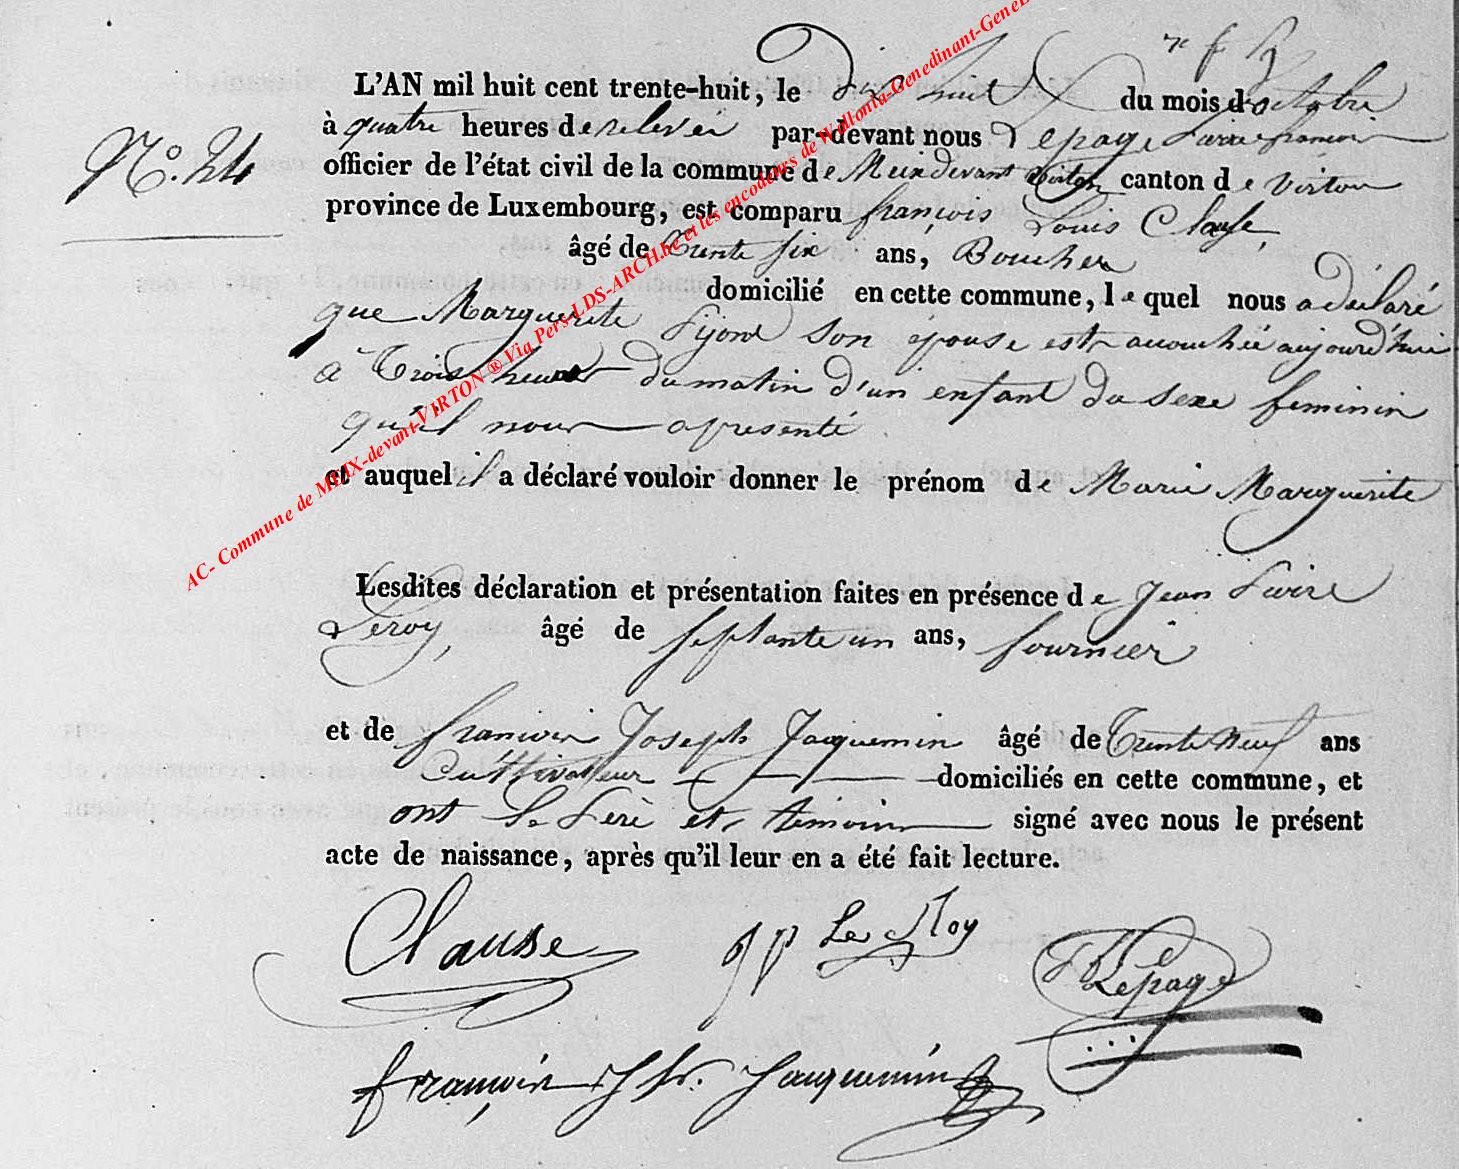 L'AN mil huit cent trente-huit, le dix huit du mois d'octobre
à quatre heures de relevée par-devant nous Lepage francois
officier de l'état civil de la commune de Meixdevant virton canton de virton
province de Luxembourg, est comparu françois Louis Clause,
âgé de trente six ans, Boucher
domicilié en cette commune, lequel nous a déclaré
que Marguerite son épouse est accouchée aujourd'hui
à trois heures du matin d'un enfant du sexe feminin
qu'il nous a présenté
et auquel il a déclaré vouloir donner le prénom de Marie Marguerite
Lesdites déclaration et présentation faites en présence de Jean Pierre
Leroy, âgé de septante un ans, fournier
et de francois Joseph Jacquemin âgé de trente neuf ans
Cultivateur domiciliés en cette commune, et
ont le Père et témoins signé avec nous le présent
acte de naissance, après qu'il leur en a été fait lecture.
N°. 24
Clause
jp Le Roy
Lepage
françois Jh. Jacquemin
AC- Commune de MEIX-devant-VIRTON ® Via Pers-LDS-ARCH.be et les encodeurs de Wallonia-Genedinant-GeneL